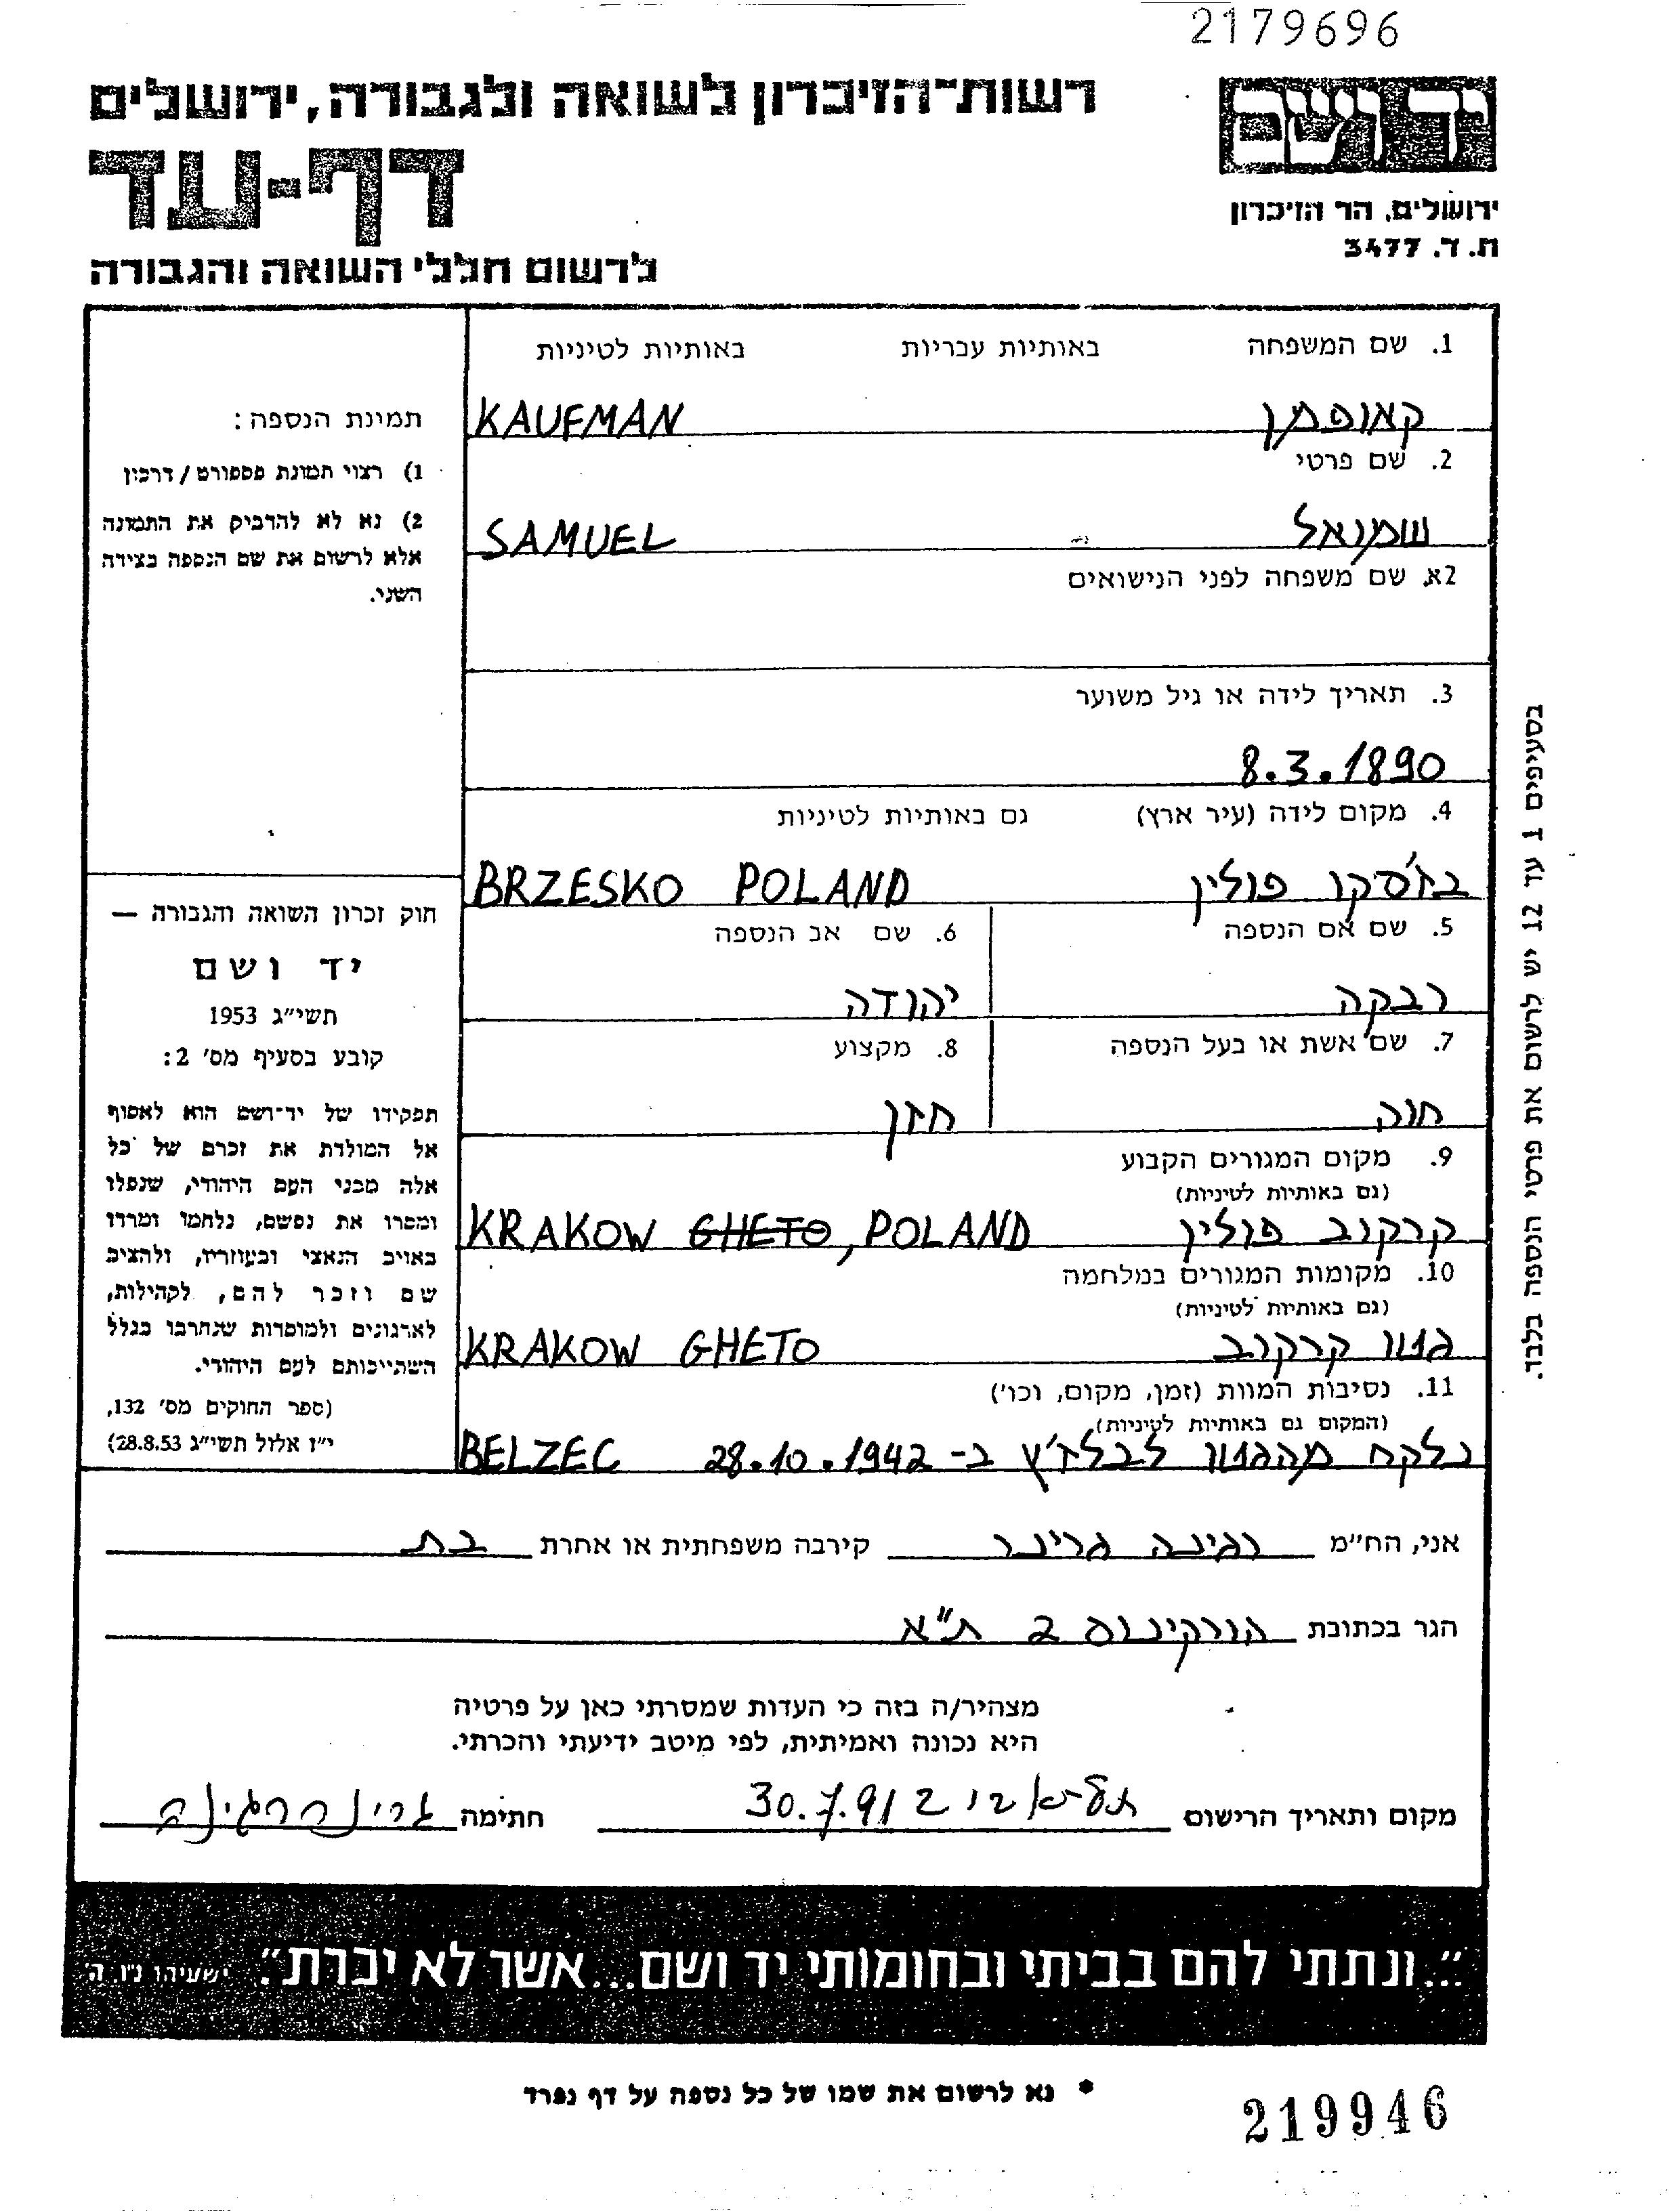 2179696
רשות־הזיכרון לשואה ולגבורה, ירושלים
יד ושם
דף-עד
ירושלים, הר הזיכרון
ת. ד. 3477
לרשום חללי השואה והגבורה
1. שם המשפחה באותיות עבריות באותיות לטיניות
קאופמן KAUFMAN
2. שם פרטי
שמואל SAMUEL
2א. שם משפחה לפני הנישואים
3. תאריך לידה או גיל משוער
8.3.1890
4. מקום לידה (עיר ארץ) גם באותיות לטיניות
בז'סקו פולין BRZESKO POLAND
5. שם אם הנספה 6. שם אב הנספה
רבקה יהודה
7. שם אשת או בעל הנספה 8. מקצוע
חוה חזן
9. מקום המגורים הקבוע
(גם באותיות לטיניות)
קרקוב פולין KRAKOW GHETO, POLAND
10. מקומות המגורים במלחמה
(גם באותיות לטיניות)
גטו קרקוב KRAKOW GHETO
11. נסיבות המוות (זמן, מקום, וכו')
(המקום גם באותיות לטיניות)
נלקח מהגטו לבלז'ץ ב- 28.10.1942 BELZEC
תמונת הנספה:
1) רצוי תמונת פספורט/דרכון
2) נא לא להדביק את התמונה
אלא לרשום את שם הנספה בצידה
השני.
חוק זכרון השואה והגבורה —
יד ושם
תשי"ג 1953
קובע בסעיף מס' 2:
תפקידו של יד־ושם הוא לאסוף
אל המולדת את זכרם של כל
אלה מבני העם היהודי, שנפלו
ומסרו את נפשם, נלחמו ומרדו
באויב הנאצי ובעוזריו, ולהציב
שם וזכר להם, לקהילות,
לארגונים ולמוסדות שנחרבו בגלל
השתייכותם לעם היהודי.
(ספר החוקים מס' 132,
י"ז אלול תשי"ג 28.8.53)
בסעיפים 1 עד 12 יש לרשום את פרטי הנספה בלבד.
אני, הח"מ רגינה גרינר קירבה משפחתית או אחרת בת
הגר בכתובת הורקינוס 2 ת"א
מצהיר/ה בזה כי העדות שמסרתי כאן על פרטיה
היא נכונה ואמיתית, לפי מיטב ידיעתי והכרתי.
מקום ותאריך הרישום תל-אביב 30.7.91 חתימה גרינר רגינה
"...ונתתי להם בביתי ובחומותי יד ושם...אשר לא יכרת". ישעיהו נ"ו ה'
* נא לרשום את שמו של כל נספה על דף נפרד
219946